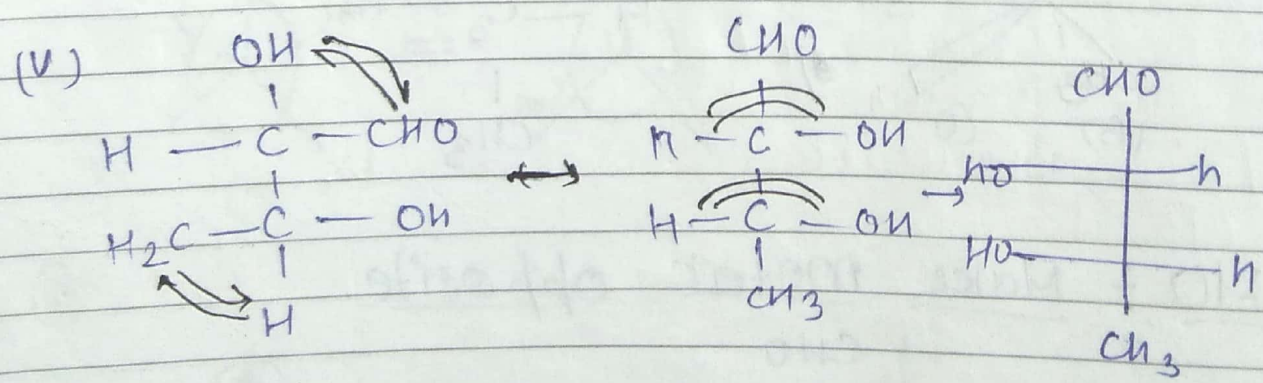 (V)
OH
H — C — CHO
H₂C — C — OH
H
CHO
H — C — OH
H — C — OH
CH₃
CHO
HO H
HO H
CH₃